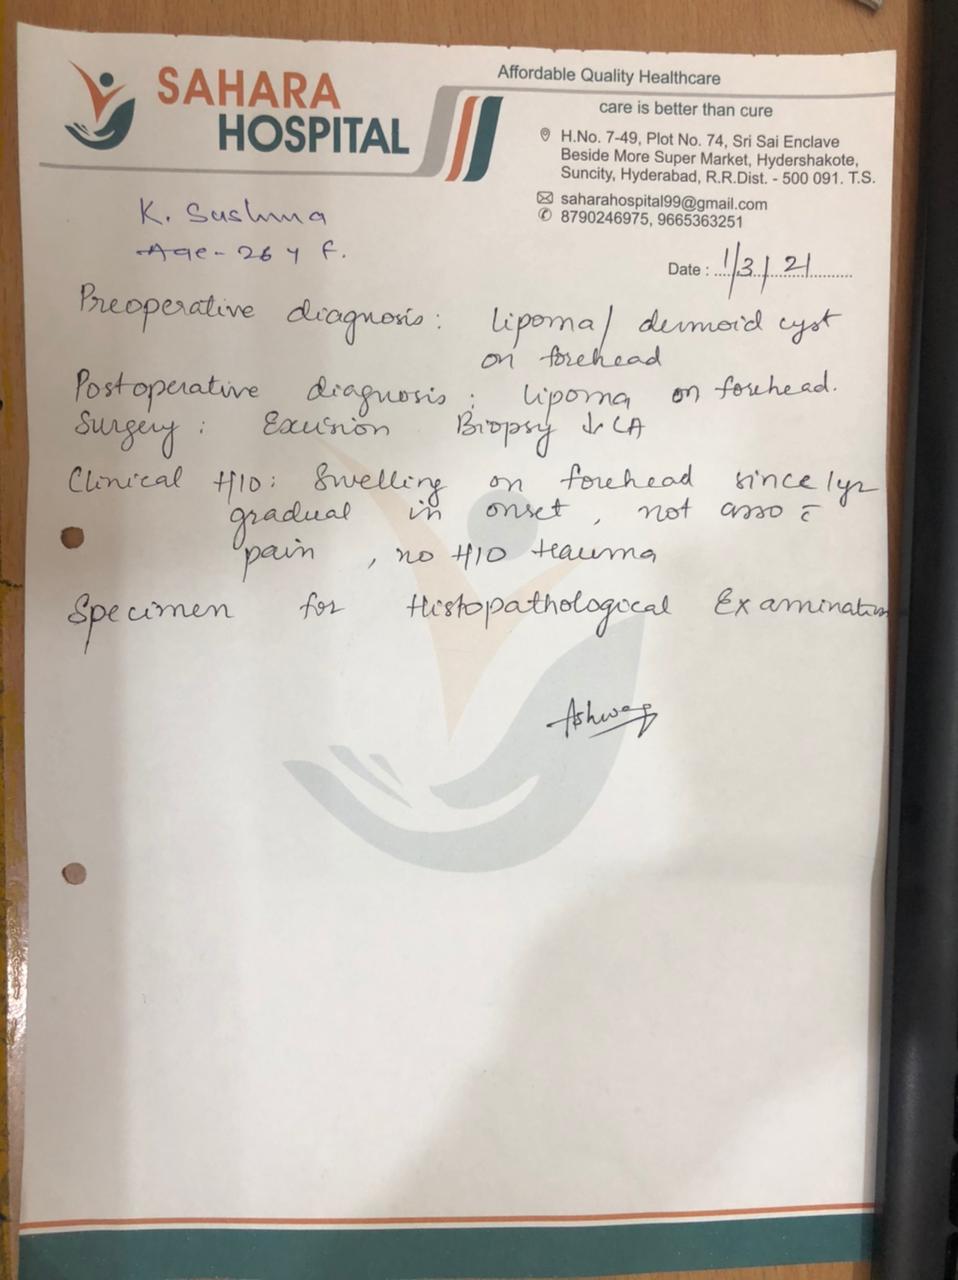 SAHARA
HOSPITAL
Affordable Quality Healthcare
care is better than cure
H.No. 7-49, Plot No. 74, Sri Sai Enclave
Beside More Super Market, Hydershakote,
Suncity, Hyderabad, R.R.Dist. - 500 091. T.S.
saharahospital99@gmail.com
8790246975, 9665363251
K. Sushma
Age - 26 y F.
Date : 1/3/21
Preoperative diagnosis: Lipoma/ dermoid cyst
on forehead
Postoperative diagnosis: Lipoma on forehead.
Surgery: Excision Biopsy LA
Clinical H/O: Swelling on forehead since 1yr
gradual in onset, not asso c̄
pain, no H/O trauma
Specimen for Histopathological Examination